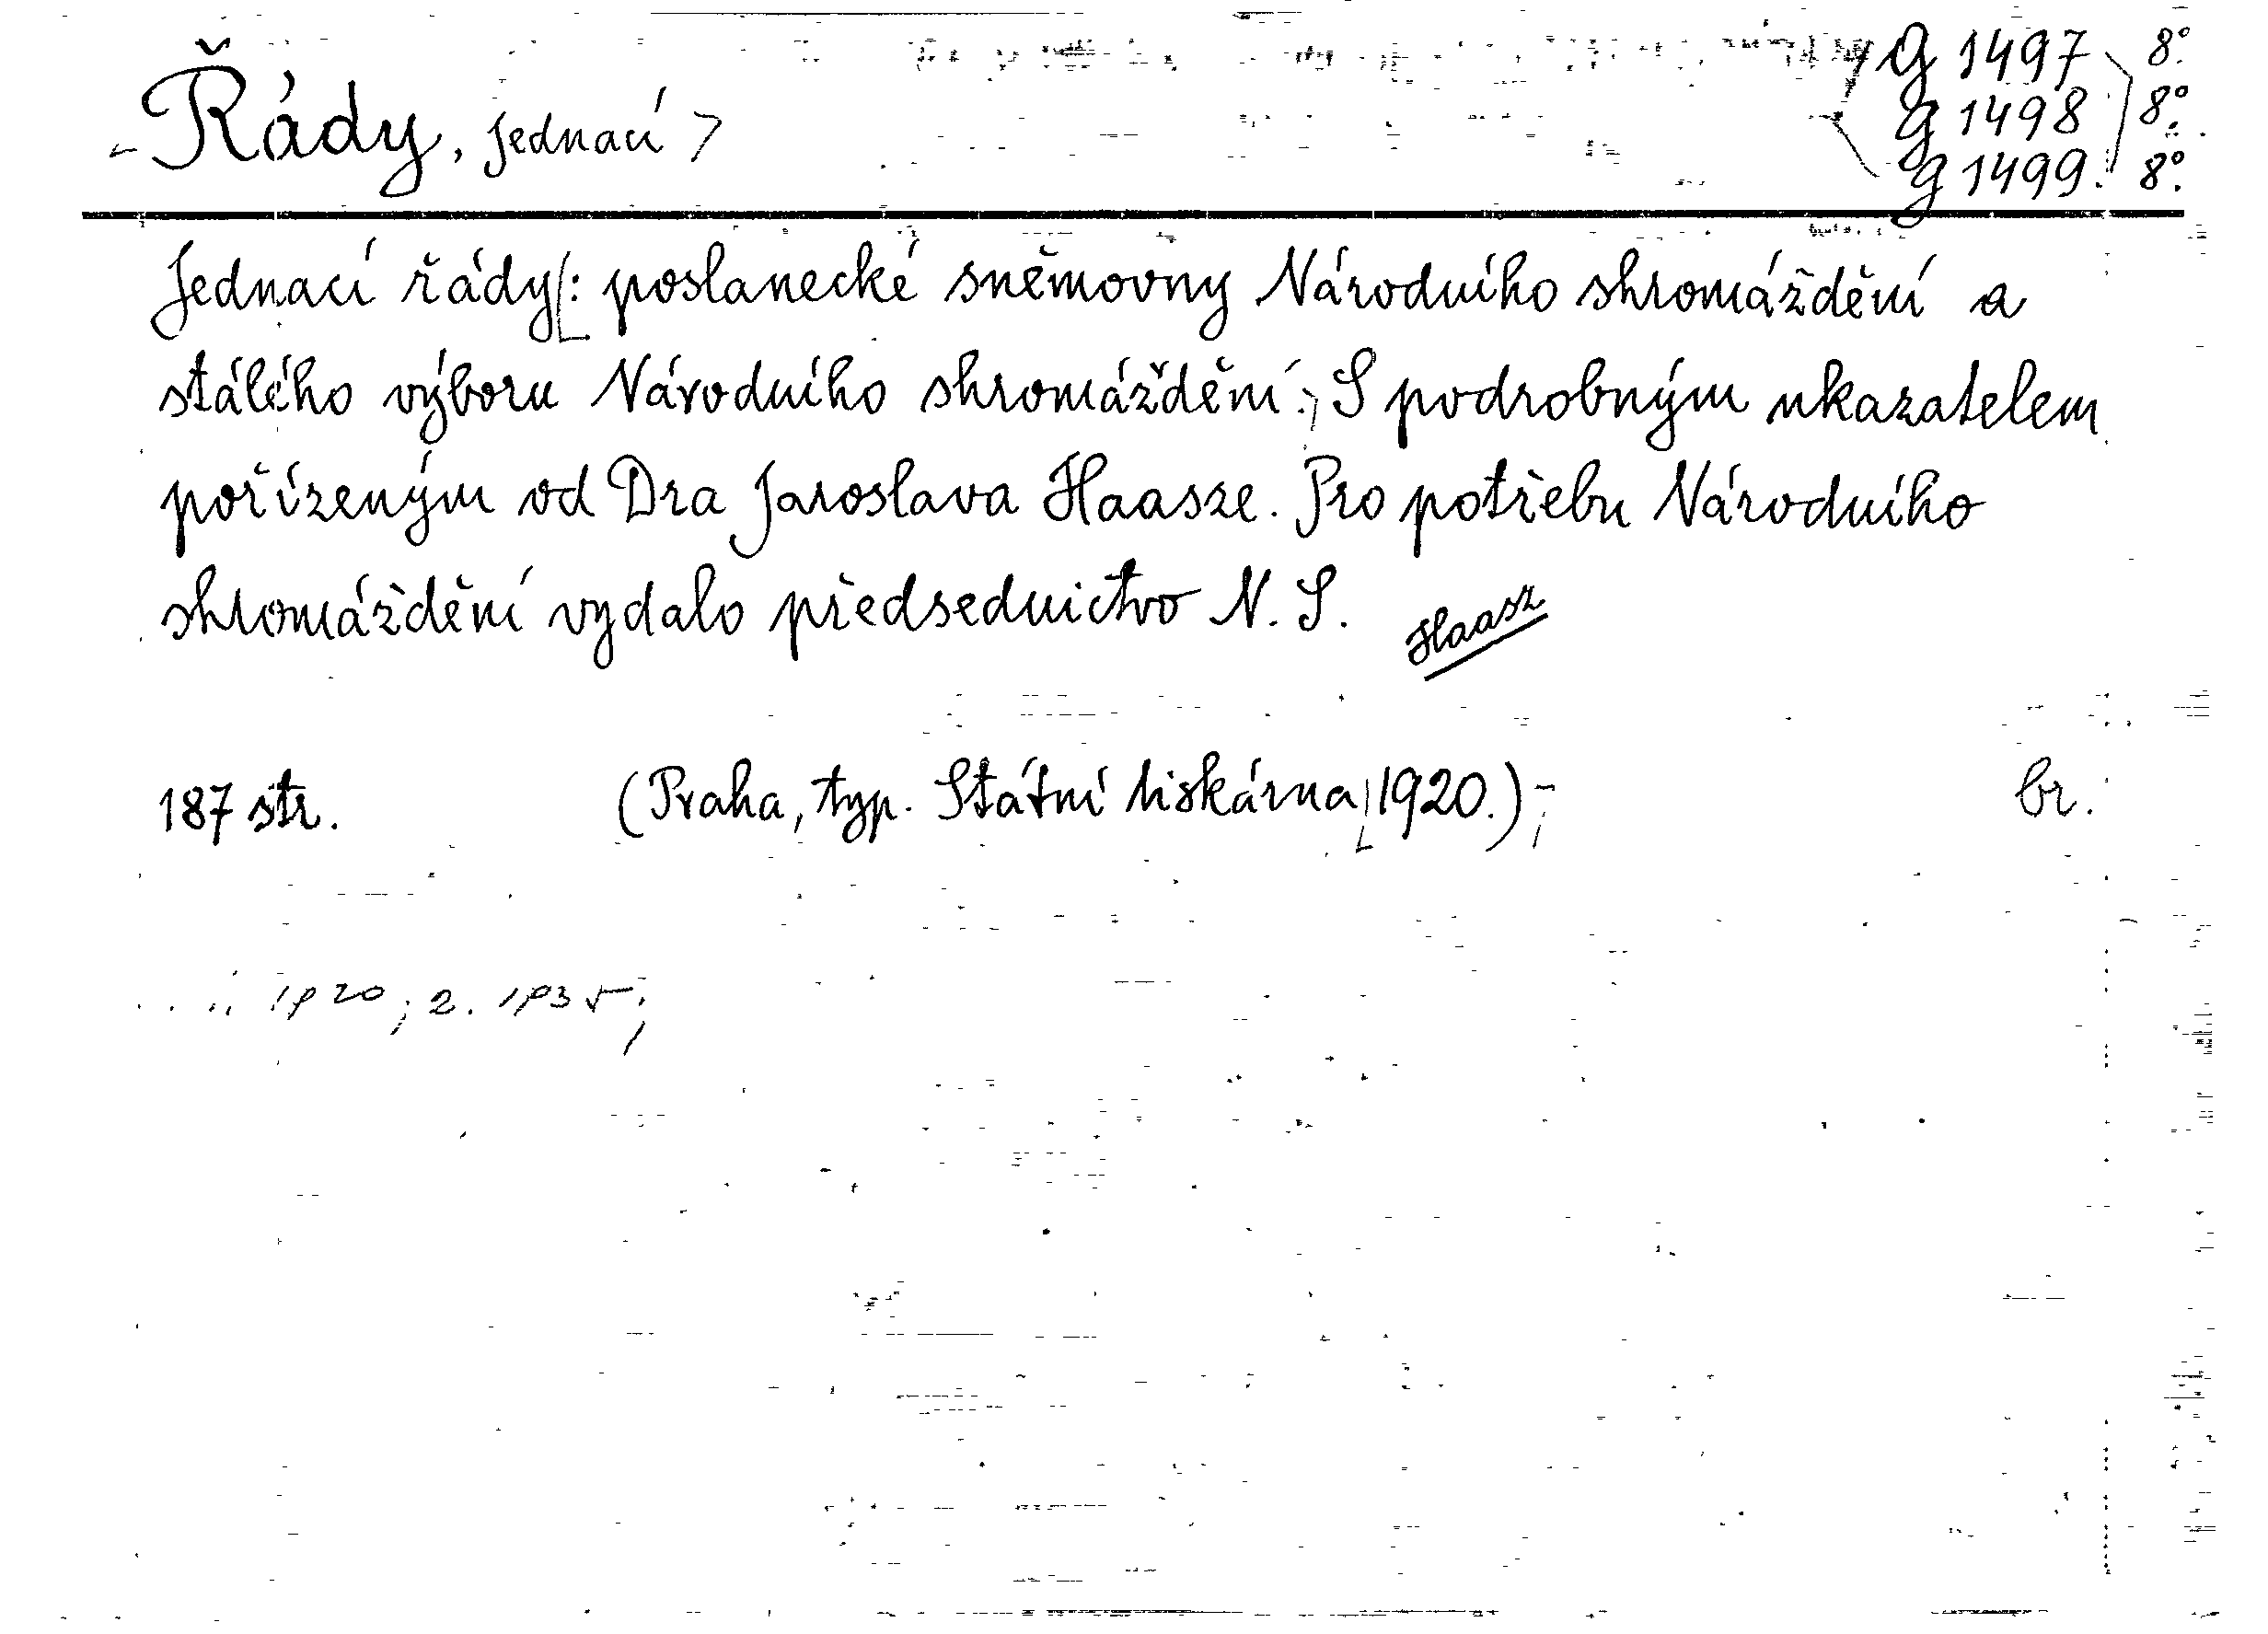 Řády, Jednací >
G 1497 8°.
G 1498 8°.
G 1499. 8°.
Jednací řády: poslanecké sněmovny Národního shromáždění a
stálého výboru Národního shromáždění; S podrobným ukazatelem
pořízeným od Dra Jaroslava Haasze. Pro potřebu Národního
shromáždění vydalo předsednictvo N. S.
Haasz
187 str. (Praha, typ. Státní tiskárna, 1920.) br.
1920; 2. 1935;